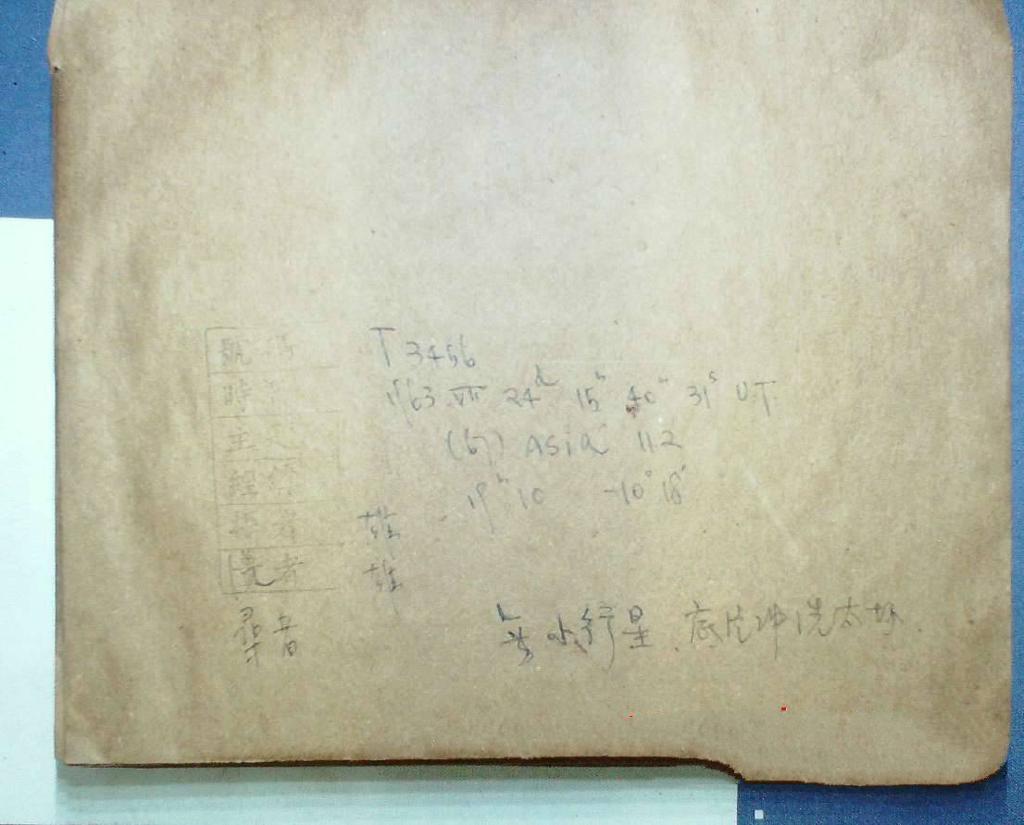 號碼 T 3456
時 1963 VII 24d 15h 40m 31s U.T.
主 (67) Asia 112
經 19h 10 -10° 18'
者 雄
洗者 雄
尋者 無小行星、底片冲洗太坏.